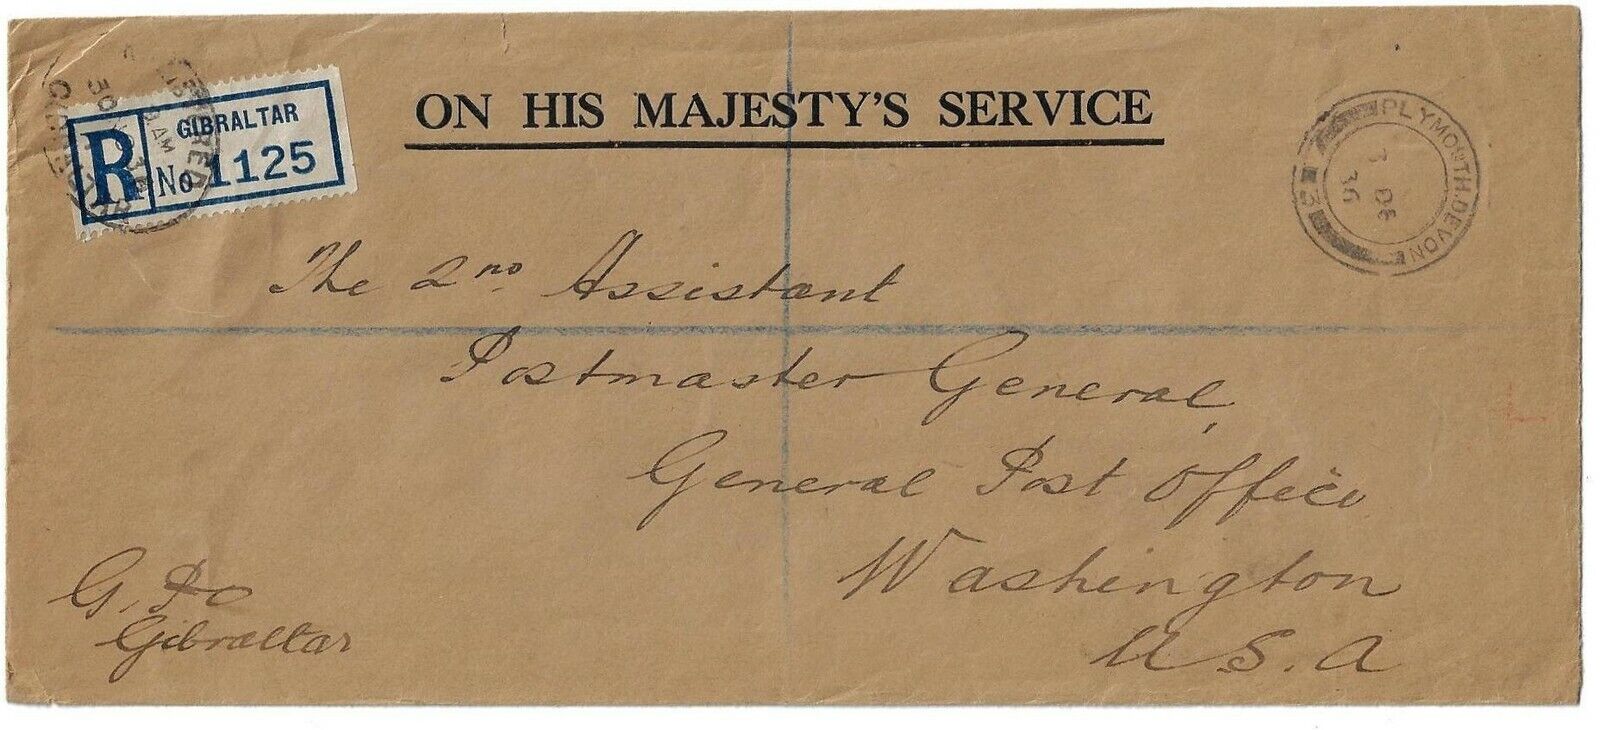 ON HIS MAJESTY'S SERVICE
GIBRALTAR
R No 1125
PLYMOUTH.DEVON
7 DE
36
3
The 2nd Assistant
Postmaster General,
General Post Office
Washington
U.S.A
G.P.O
Gibraltar